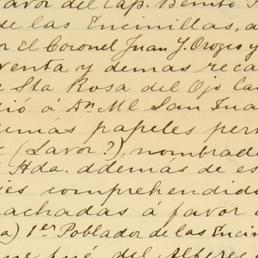 avor del Cap. Benito
de las Encinillas, a
or el Coronel Juan J. Oropes y
venta y demas reca
e Sta Rosa del Ojo Ca
dió á Dn Ml San Jua
emás papeles per
(Lavor?), nombrad
Hda. además de es
es comprehendido
achadas á favor
a) 1er Poblador de las Encin
fué del Alferes